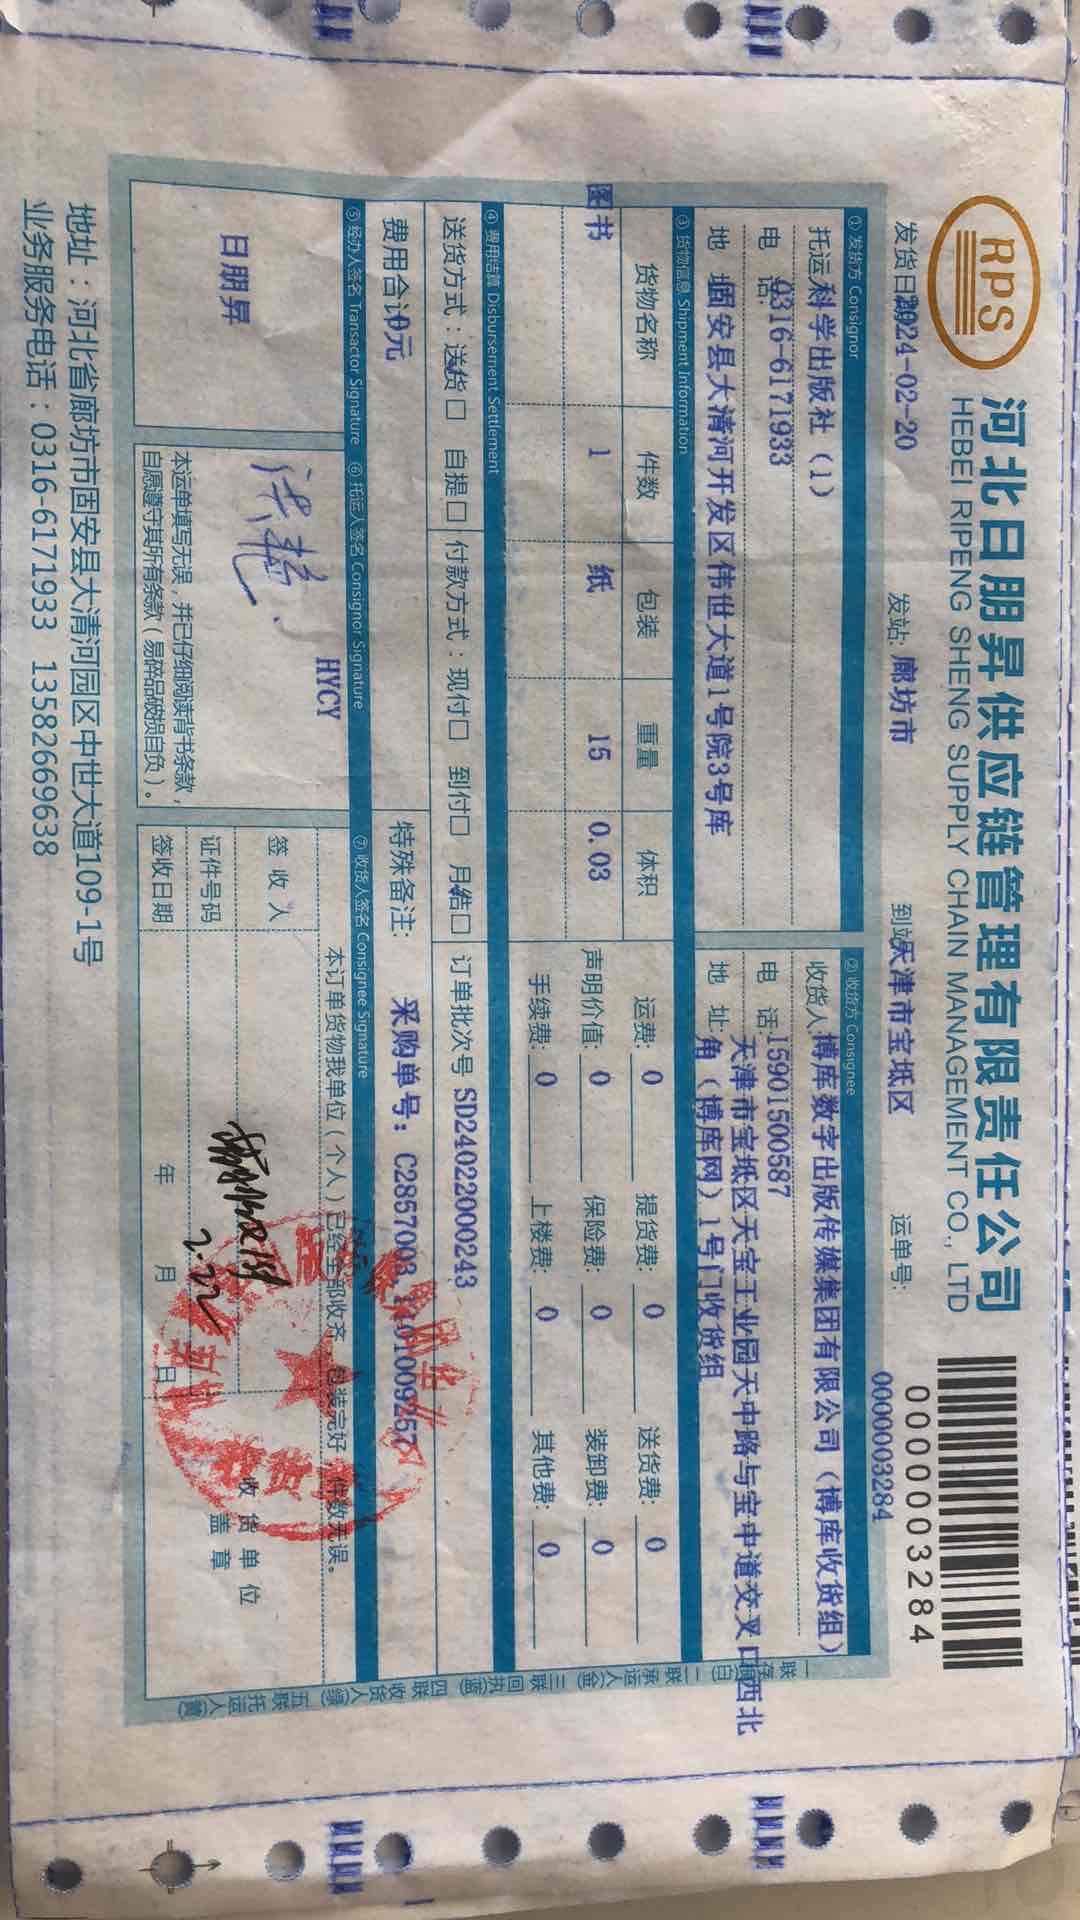 RPS
河北日朋昇供应链管理有限责任公司
HEBEI RIPENG SHENG SUPPLY CHAIN MANAGEMENT CO., LTD
0000003284
发货日期2024-02-20 发站: 廊坊市 到站天津市宝坻区 运单号: 0000003284
① 发货方 Consignor ② 收货方 Consignee
托运科学出版社 (1)
电 话: 0316-6171933
地 址固安县大清河开发区伟世大道1号院3号库
收货人:博库数字出版传媒集团有限公司(博库收货组)
电 话:15901500587
地 址: 天津市宝坻区天宝工业园天中路与宝中道交叉口西北
角(博库网)1号门收货组
③ 货物信息 Shipment Information
货物名称 件数 包装 重量 体积
图书 1 纸 15 0.03
运费: 0 提货费: 0 送货费: 0
声明价值: 0 保险费: 0 装卸费: 0
手续费: 0 上楼费: 0 其他费: 0
④ 费用结算 Disbursement Settlement
送货方式:送货□ 自提□ 付款方式:现付□ 到付□ 月结□ 订单批次号 SD2402200000243
费用合计0元 特殊备注: 采购单号: C2857003,
⑤ 经办人签名 Transactor Signature ⑥ 托运人签名 Consignor Signature ⑦ 收货人签名 Consignee Signature
日朋昇
HYCY
本运单填写无误,并已仔细阅读背书条款,
自愿遵守其所有条款(易碎品破损自负)。
本订单货物我单位(个人)已经全部收齐,包装完好,件数无误。
签 收 人
证件号码
签收日期 年 月 日
2.22
收货单位
盖章
地址:河北省廊坊市固安县大清河园区中世大道109-1号
业务服务电话:0316-6171933 13582669638